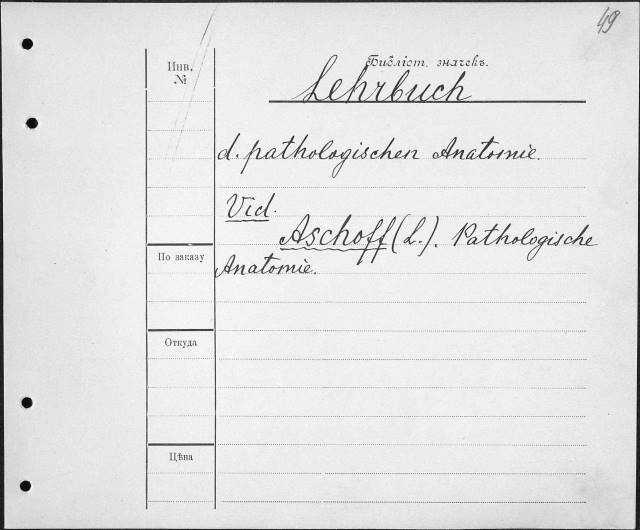 49
Инв.
№
Библіот. значекъ.
Lehrbuch
d. pathologischen Anatomie.
Vid.
Aschoff (L.). Pathologische
Anatomie.
По заказу
Откуда
Цѣна